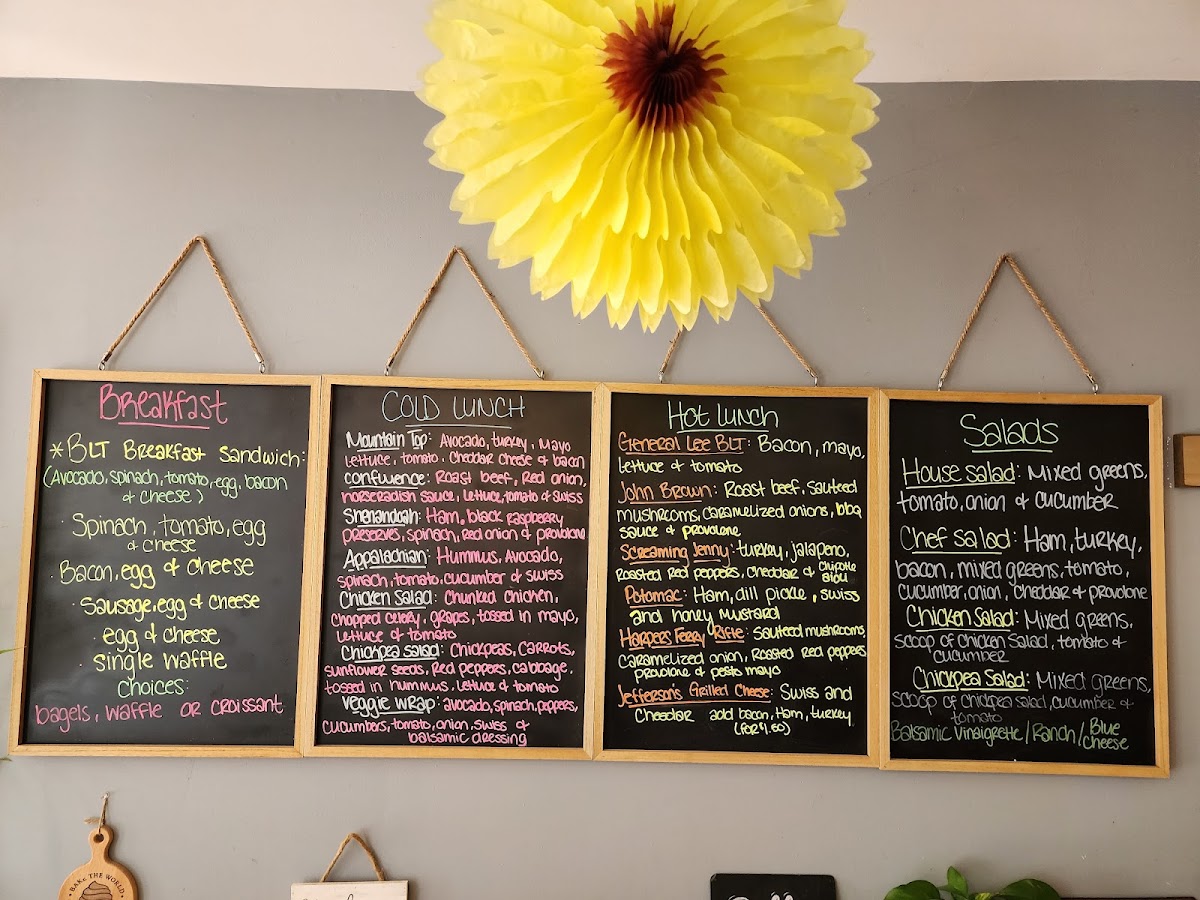 Breakfast
*BLT Breakfast Sandwich:
(Avocado, spinach, tomato, egg, bacon
& cheese)
· Spinach, tomato, egg
& cheese
· Bacon, egg & cheese
· Sausage, egg & cheese
· egg & cheese
· single waffle
Choices:
bagels, waffle or croissant
COLD LUNCH
Mountain Top: Avocado, turkey, Mayo
lettuce, tomato, Cheddar cheese & bacon
Confluence: Roast beef, Red onion,
horseradish sauce, lettuce, tomato & swiss
Shenandoah: Ham, black raspberry
preserves, spinach, red onion & provolone
Appalachian: Hummus, Avocado,
spinach, tomato, cucumber & swiss
Chicken Salad: Chunked chicken,
chopped celery, grapes, tossed in mayo,
lettuce & tomato
Chickpea salad: Chickpeas, Carrots,
sunflower seeds, Red peppers, cabbage,
tossed in hummus, lettuce & tomato
Veggie wrap: avocado, spinach, peppers,
cucumbers, tomato, onion, swiss &
balsamic dressing
Hot lunch
General Lee BLT: Bacon, mayo,
lettuce & tomato
John Brown: Roast beef, sauteed
mushrooms, caramelized onions, bbq
sauce & provolone
Screaming Jenny: turkey, jalapeno,
Roasted red peppers, cheddar & Chipotle
aioli
Potomac: Ham, dill pickle, swiss
and honey mustard
Harpers Ferry Rifle: sauteed mushrooms,
caramelized onion, Roasted Red peppers
provolone & pesto mayo
Jefferson's Grilled Cheese: Swiss and
Cheddar add bacon, Ham, turkey
(for $1.50)
Salads
House salad: Mixed greens,
tomato, onion & cucumber
Chef salad: Ham, turkey,
bacon, mixed greens, tomato,
cucumber, onion, cheddar & provolone
Chicken Salad: Mixed greens,
scoop of chicken Salad, tomato &
cucumber
Chickpea Salad: Mixed greens,
scoop of chickpea salad, cucumber &
tomato
Balsamic Vinaigrette / Ranch / Blue
Cheese
BAKE THE WORLD